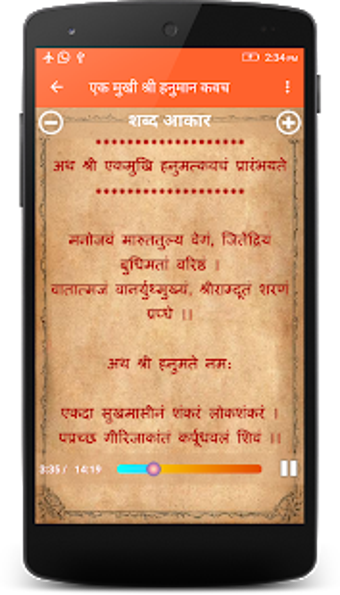 2:34 PM
एक मुखी श्री हनुमान कवच
शब्द आकार
अथ श्री एकमुखि हनुमत्कवचं प्रारंभ्यते
मनोजवं मारुततुल्य वेगं, जितेंद्रियं
बुधिमतां वरिष्ठं ।
वातात्मजं वानरयुथमुख्यं, श्रीरामदूतं शरणं
प्रपधे ।।
अथ श्री हनुमते नमः
एकदा सुखमासीनं शंकरं लोकशंकरं ।
पप्रच्छ गीरिजाकांतं कर्पूरधवलं शिवं ।।
3:35 / 14:19